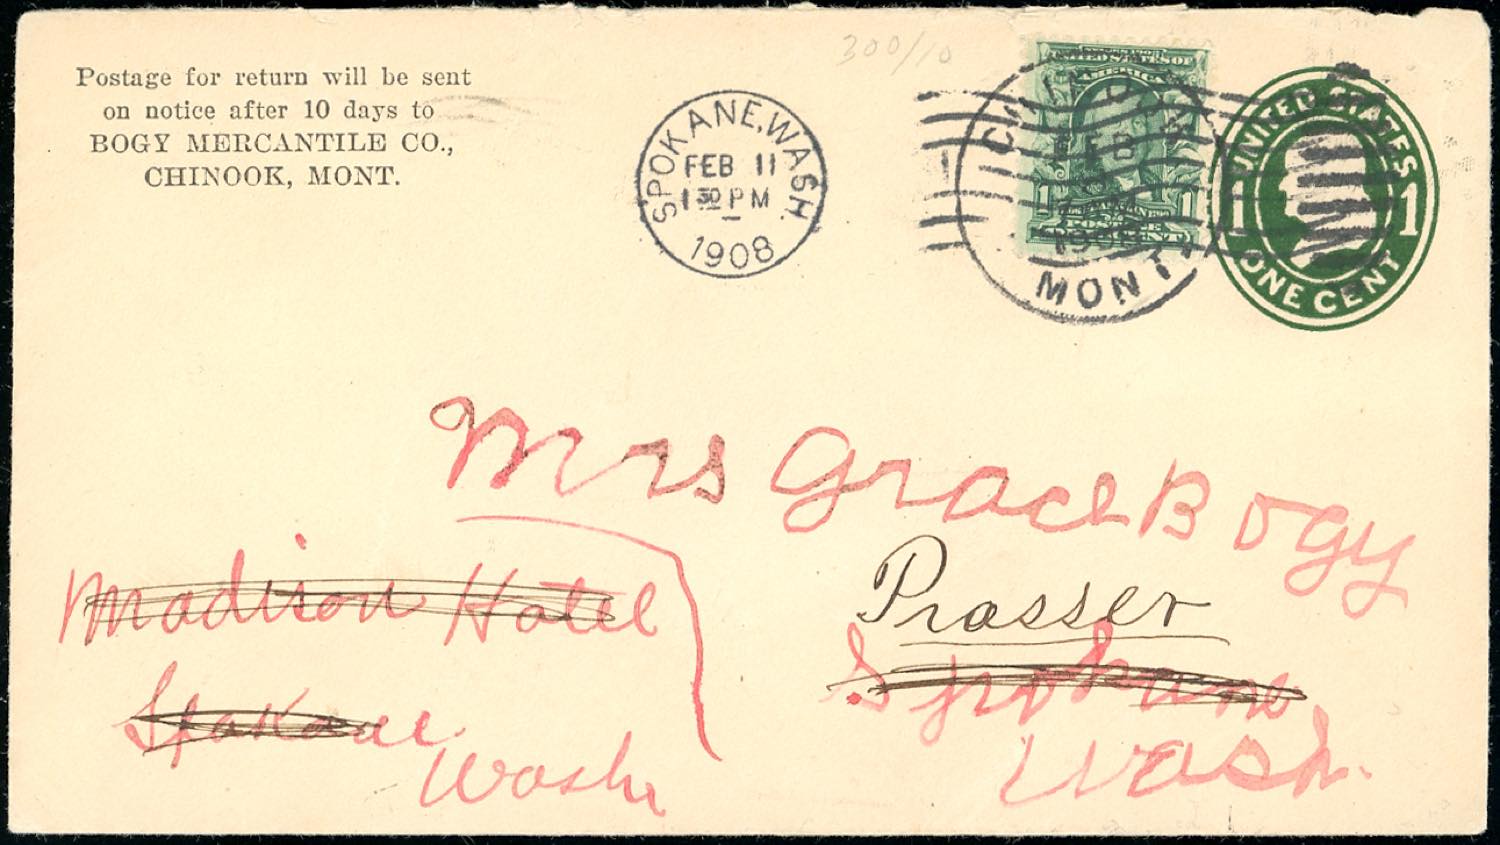 Postage for return will be sent
on notice after 10 days to
BOGY MERCANTILE CO.,
CHINOOK, MONT.
300/10
SPOKANE, WASH.
FEB 11
1 30 PM
1908
CHINOOK
FEB
1908
MONT.
UNITED STATES OF
AMERICA
1 1
POSTAGE
UNITED STATES
1 1
ONE CENT
Mrs Grace Bogy
Prosser
Madison Hotel
Spokane
Wash
Spokane
Wash.